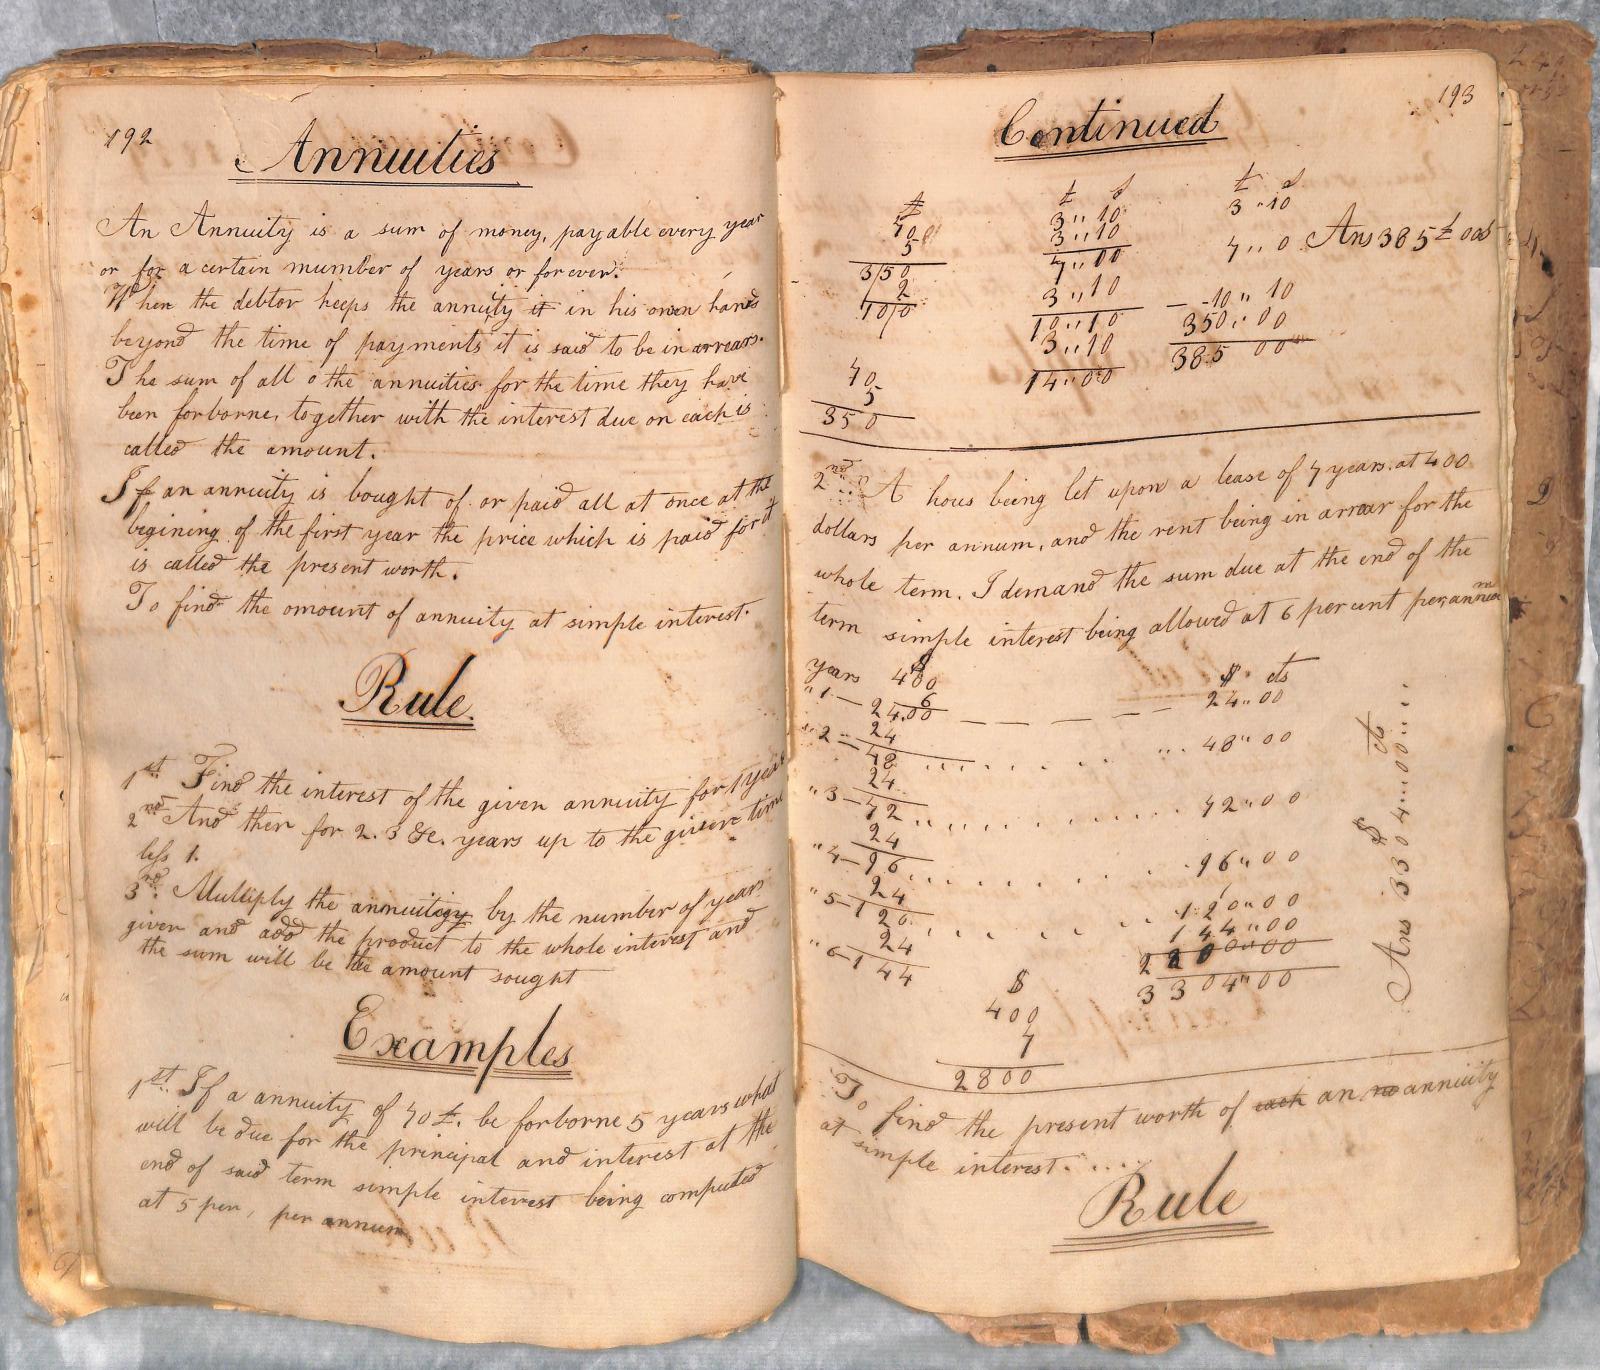 192
Annuities
An Annuity is a sum of money, payable every year
or for a certain mumber of years or forever.
When the debtor keeps the annuity it in his own hands
beyond the time of payments it is said to be in arrears.
The sum of all o the annuities for the time they have
been forborne, together with the interest due on each is
called the amount.
If an annuity is bought of or paid all at once at the
begining of the first year the price which is paid for it
is called the present worth.
To find the omount of annuity at simple interest.
Rule.
1st Find the interest of the given annuity for 1 year
2nd And then for 2. 3 &c. years up to the given time
less 1.
3rd. Multiply the by the number of years
given and add the product to the whole interest and
the sum will be the amount sought
Examples
1st If a annuity of 70 £. be forborne 5 years what
will be due for the principal and interest at the
end of said term simple interest being computed
at 5 per, per annum
193
Continued
£
70
5
3/50
2
10/0
70
5
350
£ s
3 " 10
3 " 10
7 " 00
3 " 10
10 " 10
3 " 10
14 " 00
£ s
3 " 10
7 " 0
10 " 10
350 " 00
385 00
Ans 385 £ 00s
2nd A hous being let upon a lease of 7 years. at 400
dollars per annum, and the rent being in arrear for the
whole term. I demand the sum due at the end of the
term simple interest being allowed at 6 per cent per annum
years 400 $ $ cts
6
" 1 — 24.00 — — — — 24 " 00
24
" 2 — 48 . . . . . . 48 " 00
24
" 3 — 72 . . . . . . 72 " 00
24
" 4 — 96 . . . . . . 96 " 00
24
" 5 — 120 . . . . . . 120 " 00
24
" 6 — 144 144 " 00
2800 " 00
3304 " 00
$
400
7
2800
Ans 3304 $ " 00 cts
To find the present worth of each an no annuity
at simple interest. . . . .
Rule